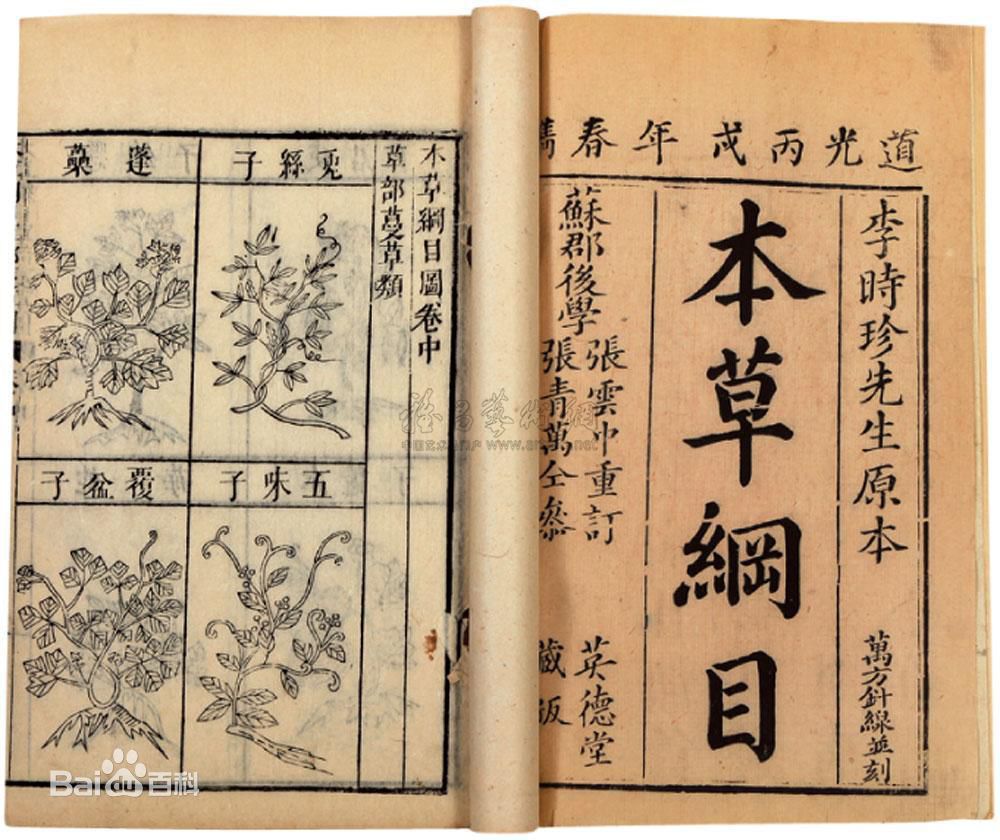 道光丙戌年春鐫
李時珍先生原本
萬方針線並刻
本草綱目
蘇郡後學
張雲中重訂
張青萬仝參
英德堂
藏版
本草綱目圖卷中
草部蔓草類
兎絲子
蓬蘽
五味子
覆盆子
www.
Bai百科